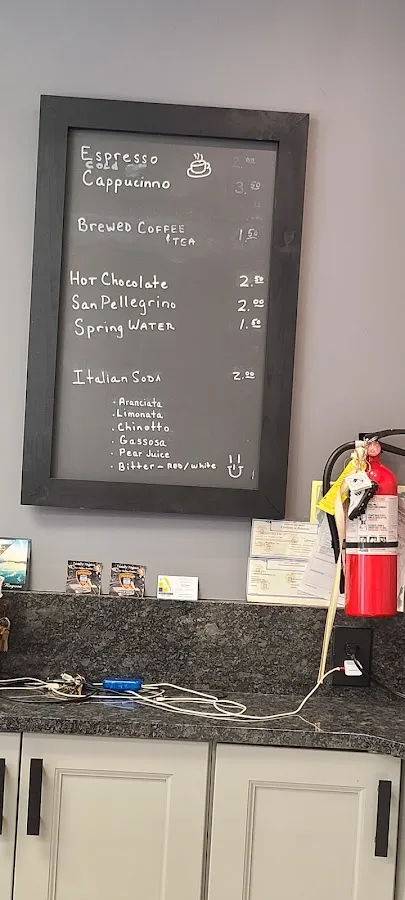 Espresso 2.00
COLD
Cappucinno 3.00
BREWED COFFEE 1.50
& TEA
HOT Chocolate 2.50
San Pellegrino 2.00
Spring WATER 1.50
Italian SODA 2.00
• Aranciata
• Limonata
• Chinotto
• Gassosa
• Pear Juice
• Bitter - RED/White